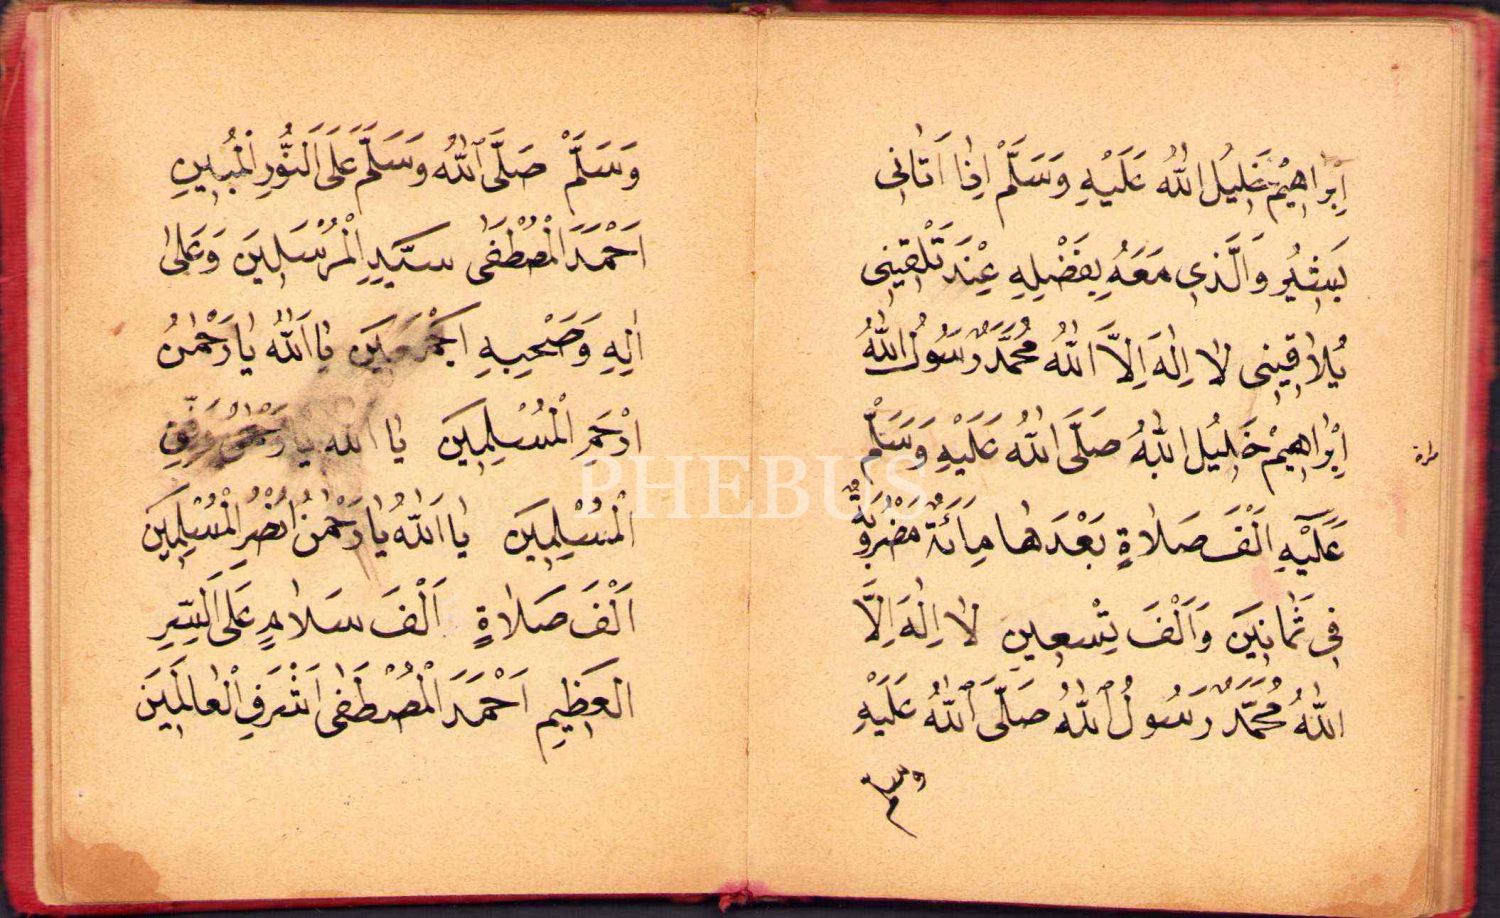 اِبْرَاهِيمْ خَلِيلُ اللّٰهُ عَلَيْهِ وَسَلَّمْ اِذَا اَتَانِى
بَشِيرُ وَالَّذِى مَعَهُ بِفَضْلِهِ عِنْدَ تَلْقِينِى
يُلَاقِينِى لَا اِلٰهَ اِلَّا اللّٰهُ مُحَمَّدٌ رَسُولُ اللّٰهُ
اِبْرَاهِيمْ خَلِيلُ اللّٰهُ صَلَّى اللّٰهُ عَلَيْهِ وَسَلَّمْ
عَلَيْهِ اَلْفَ صَلَاةٍ بَعْدَهَا مِاَئَةٌ مَضْرُوبَةٌ
فِى ثَمَانِينَ وَاَلْفَ تِسْعِينِ لَا اِلٰهَ اِلَّا
اللّٰهُ مُحَمَّدٌ رَسُولُ اللّٰهُ صَلَّى اللّٰهُ عَلَيْهِ
وسلم
وَسَلَّمْ صَلَّى اللّٰهُ وَسَلَّمَ عَلَى النُّورِ الْمُبِينِ
اَحْمَدَ الْمُصْطَفٰى سَيِّدِ الْمُرْسَلِينَ وَعَلٰى
اٰلِهِ وَصَحْبِهِ اَجْمَعِينَ يَا اَللّٰهُ يَا رَحْمٰنُ
اِرْحَمِ الْمُسْلِمِينَ يَا اَللّٰهُ يَا رَحْمٰنُ وَفِّقِ
الْمُسْلِمِينَ يَا اَللّٰهُ يَا رَحْمٰنُ اُنْصُرِ الْمُسْلِمِينَ
اَلْفَ صَلَاةٍ اَلْفَ سَلَامٍ عَلَى السِّرِ
الْعَظِيمِ اَحْمَدَ الْمُصْطَفٰى اَشْرَفِ الْعَالَمِينَ
PHEBUS